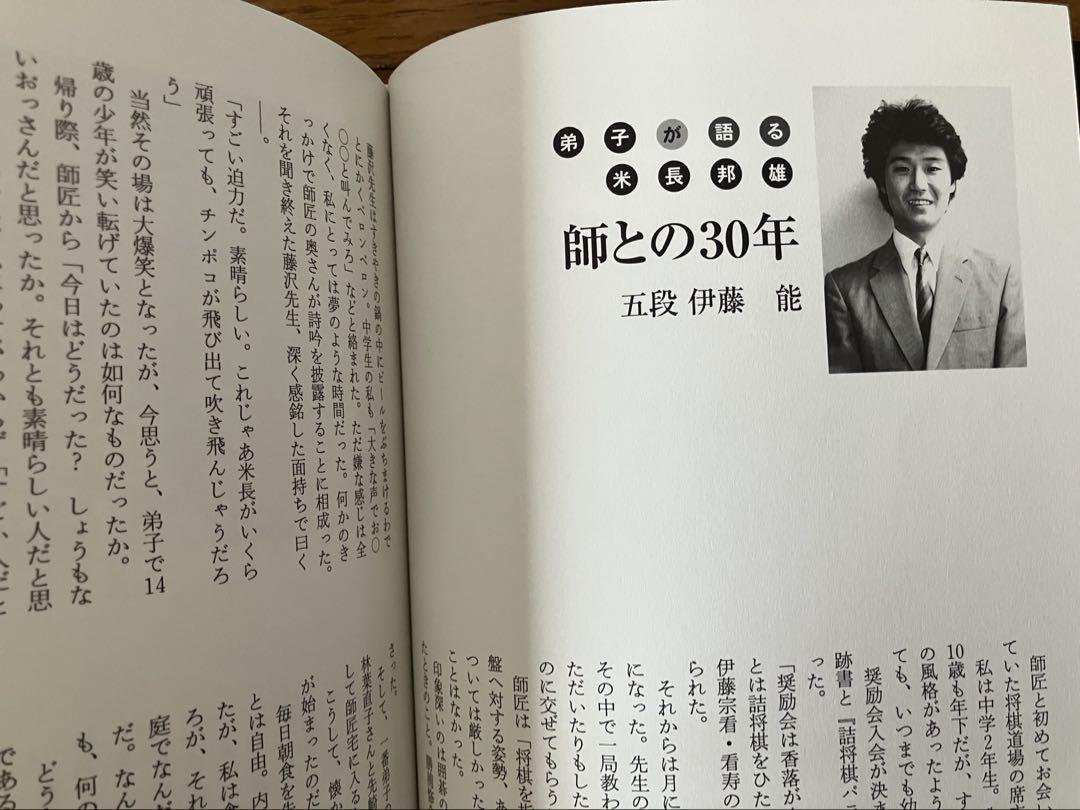 弟子が語る
米長邦雄
師との30年
五段 伊藤 能
師匠と初めてお会
ていた将棋道場の席
私は中学2年生。
10歳も年下だが、す
の風格があったよう
ても、いつまでも
奨励会入会が決ま
跡書と『詰将棋パ
った。
「奨励会は香落が
とは詰将棋をひた
伊藤宗看・看寿の
られた。
それからは月に
になった。先生の
その中で一局教わ
ただいたりもした
のに交ぜてもらう
師匠は「将棋を
盤へ対する姿勢、あ
ついては厳しかった
ことはなかった。
印象深いのは囲碁の
たときのこと。
藤沢先生はすきやきの鍋の中にビールをぶちまけるわで
とにかくベロンベロン。中学生の私も「大きな声でお〇
〇〇と叫んでみろ」などと絡まれた。ただ嫌な感じは全
くなく、私にとっては夢のような時間だった。何かのき
っかけで師匠の奥さんが詩吟を披露することに相成った。
それを聞き終えた藤沢先生、深く感銘した面持ちで曰く
――。
「すごい迫力だ。素晴らしい。これじゃあ米長がいくら
頑張っても、チンポコが飛び出て吹き飛んじゃうだろ
う」
当然その場は大爆笑となったが、今思うと、弟子で14
歳の少年が笑い転げていたのは如何なものだったか。
帰り際、師匠から「今日はどうだった? しょうもな
いおっさんだと思ったか。それとも素晴らしい人だと思
さった。
そして、一番弟子の
林葉直子さんと先
して師匠宅に入る
こうして、懐か
が始まったのだ
毎日朝食を
とは自由。内
たが、私は
ろが、それ
庭でなん
だ。なん
も、何の
どう
である